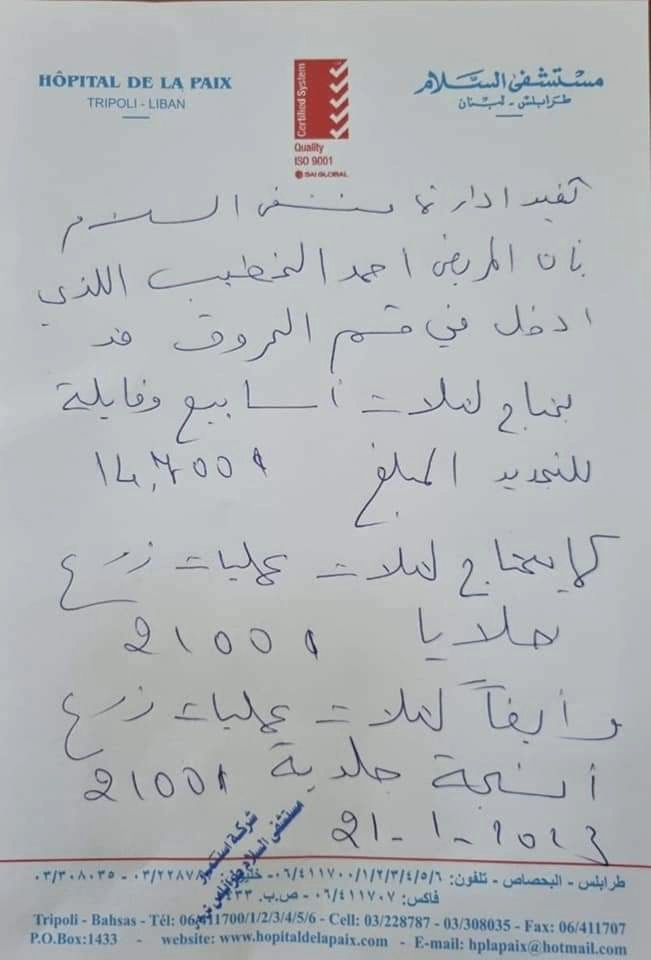 HÔPITAL DE LA PAIX
TRIPOLI - LIBAN
Certified System
Quality
ISO 9001
SAI GLOBAL
مستشفى السلام
طرابلس - لبنان
تفيد ادارة مستشفى السلام
بان المريض احمد الخطيب اللذي
ادخل في قسم الحروق قد
يحتاج لثلاث أسابيع وقابلة
للتجديد المبلغ 14,700$
كما يحتاج لثلاث عمليات زرع
خلايا 2100$
وأيضاً لثلاث عمليات زرع
أنسجة جلدية 2100$
21-1-2023
شركة استثمار
مستشفى السلام طرابلس
طرابلس - البحصاص - تلفون: ٠٦/٤١١٧٠٠/١/٢/٣/٤/٥/٦ - ٠٣/٣٠٨٠٣٥
فاكس: ٠٦/٤١١٧٠٧ - ص.ب.
Tripoli - Bahsas - Tél: 06/411700/1/2/3/4/5/6 - Cell: 03/228787 - 03/308035 - Fax: 06/411707
P.O.Box:1433 - website: www.hopitaldelapaix.com - E-mail: hplapaix@hotmail.com